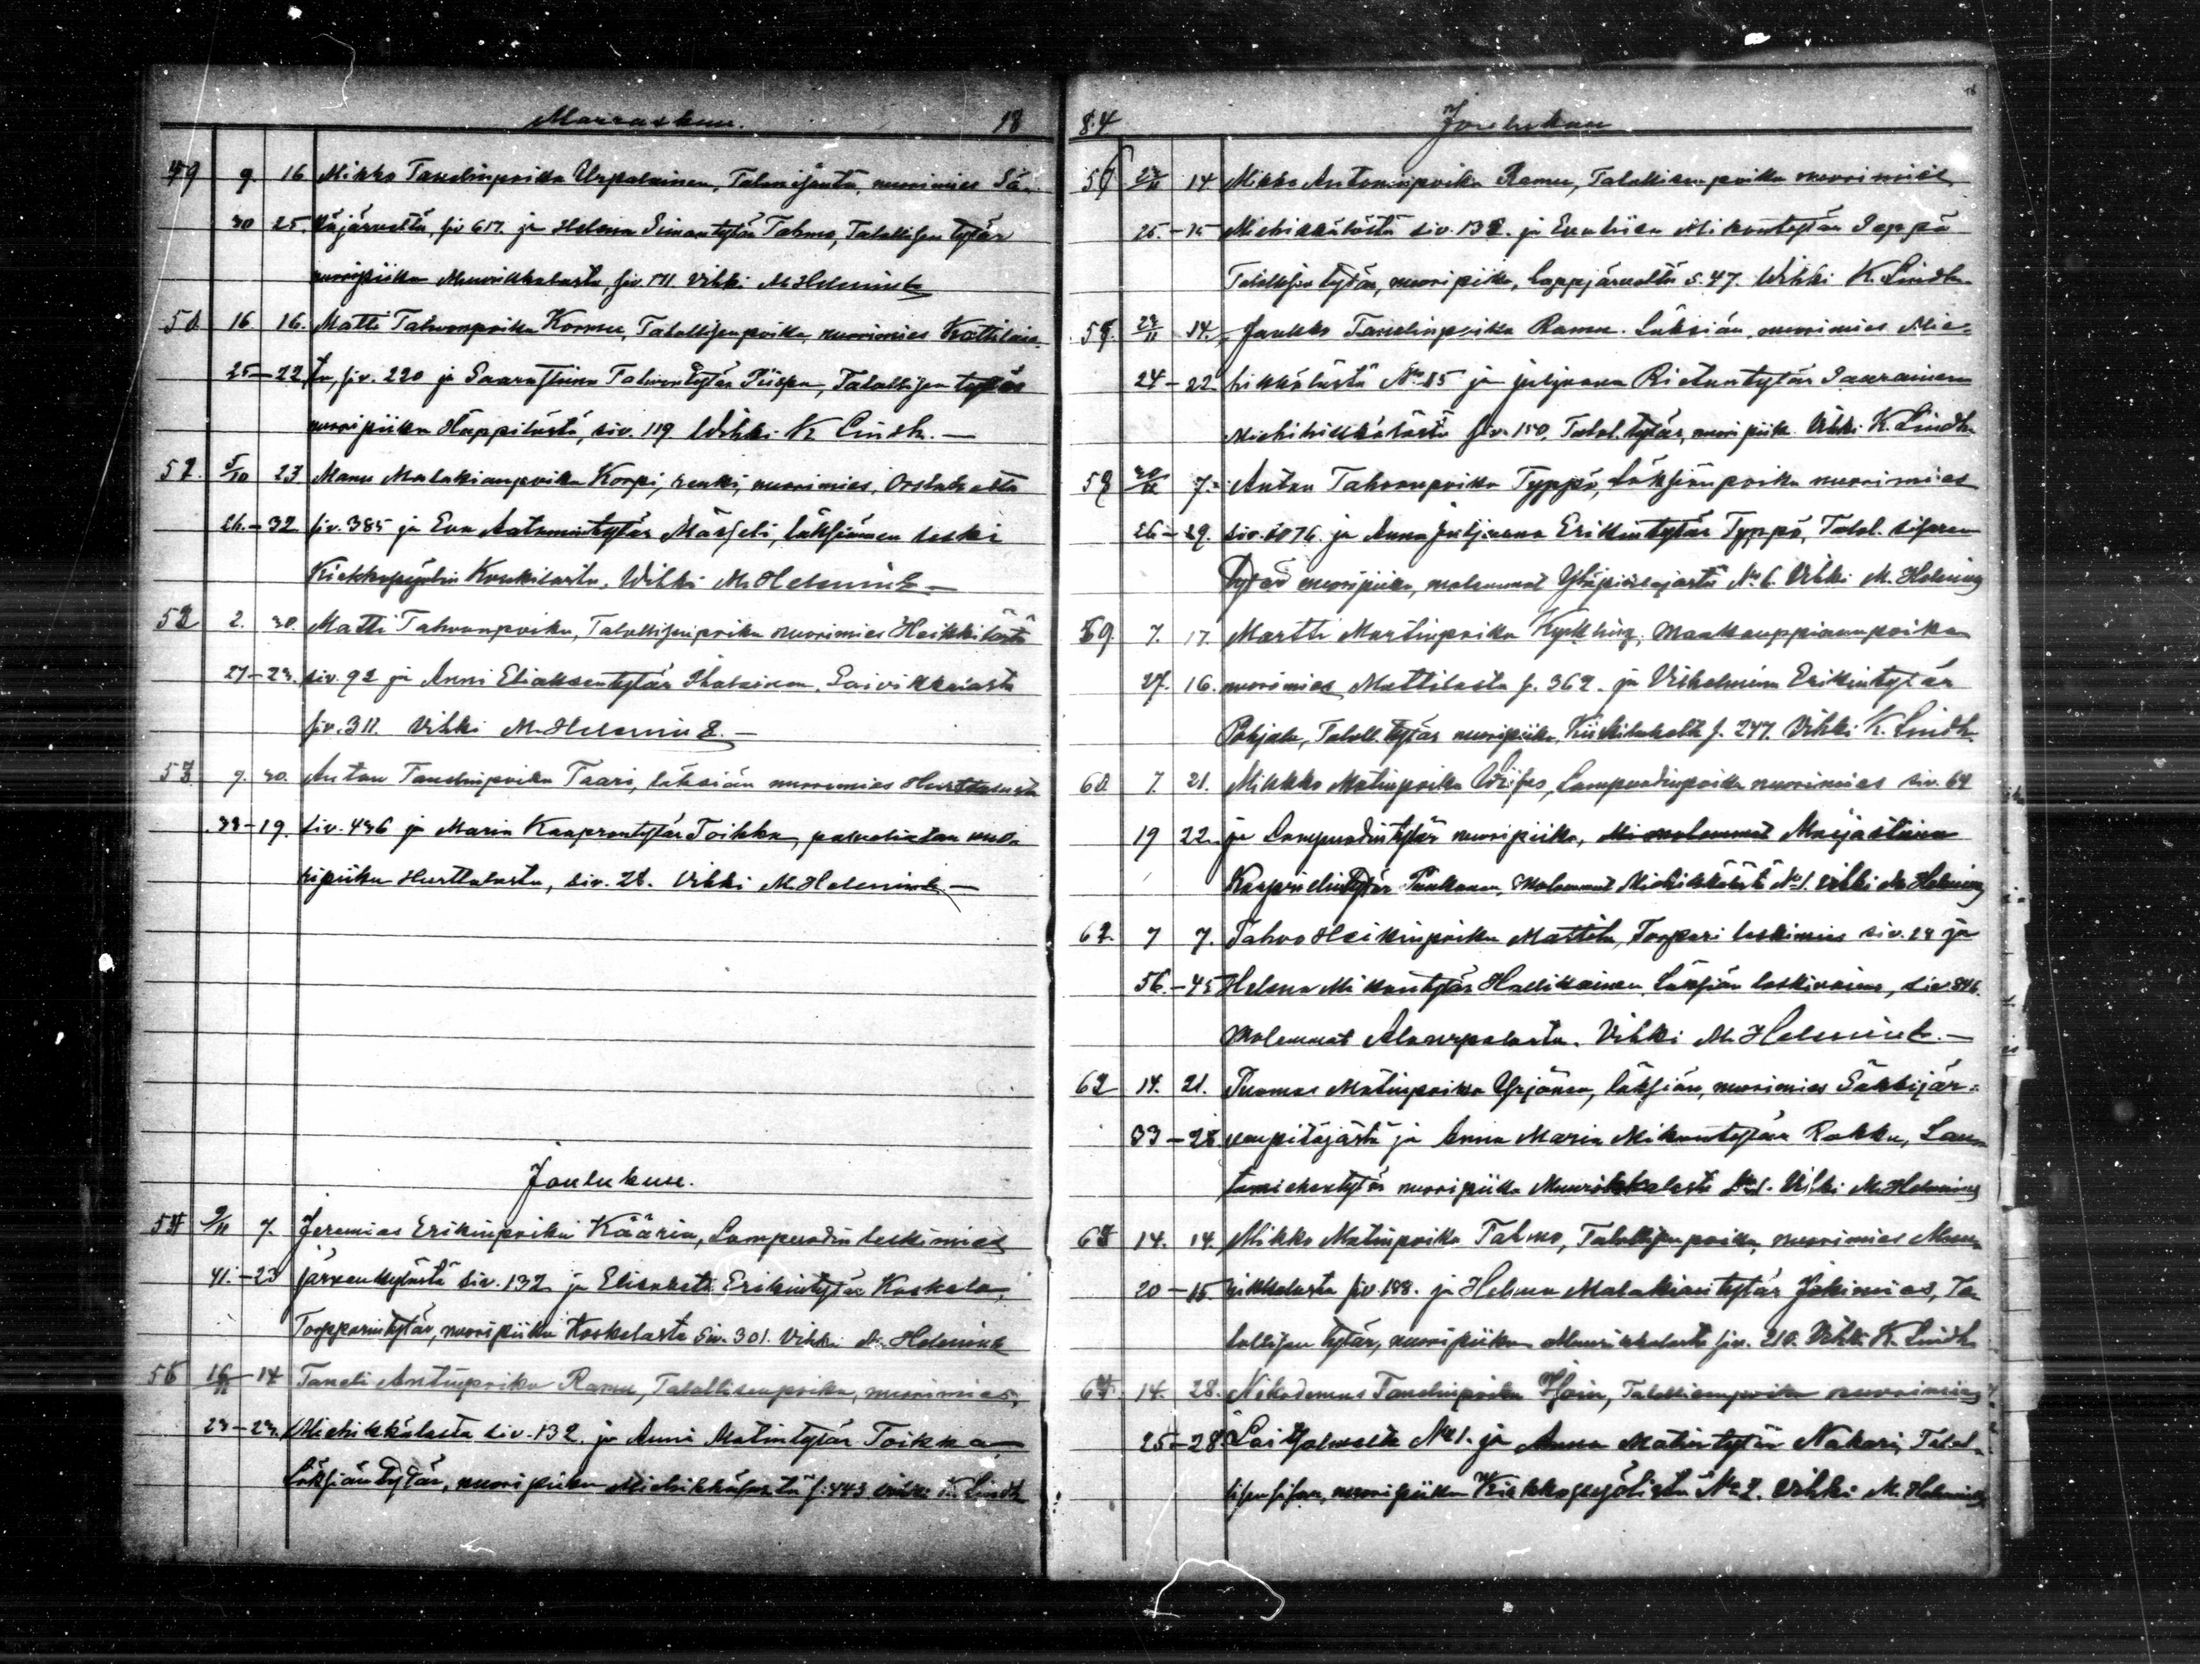 Marraskuu. 18
49 9. 16 Mikko Tanelinpoika Urpalainen, Talonisäntä, nuorimies Sä-
30 25. käjärveltä, siv 617. ja Helena Simontytär Tahmo, Talollisen tytär
nuoripiika Muurikkalasta, siv. 171. Vihki M. Helenius
50. 16 16. Matti Tahvonpoika Kormu, Talollisenpoika, nuorimies Kattilais-
25—22 ta, siv. 220 ja Saara Stiina Tahvontytär Piispa, Talollisen tytär
nuoripiika Häppilästä, siv. 119 Vihki K Lindh. —
51. 5/10 23 Manu Malakianpoika Korpi, renki, nuorimies,
26.—32 siv. 385 ja Eva Aatamintytär läksiämen leski
Vihki M. Helenius —
52 2. 30. Matti Tahvonpoika, Talollisenpoika nuorimies Heikkilästä
27—23. siv. 92 ja Anni Eliaksentytär Saivikkalasta
siv. 311. Vihki M. Helenius. —
53 9. 30. Anton Tanelinpoika Taari, läksiän nuorimies Hurttalasta
33—19. siv. 436 ja Maria Kaaprontytär Toikka, nuo-
ripiika Hurttalasta, siv. 28. Vihki M. Helenius. —
Joulukuu.
54 9/11 7. Jeremias Erikinpoika Kääriä, Lampuodin leskimies
41.—23 järvenkylästä siv. 132 ja Elisabeth Erikintytär Koskela,
Torpparintytär, nuoripiika Koskelasta Siv. 301. Vihki M. Helenius
55 16/11—14 Taneli Antinpoika Ramu, Talollisenpoika, nuorimies,
23—23. Miehikkälästä siv. 132. ja Anni Matintytär Toikka
Läksiäntytär, nuoripiika Miehikkälästä s. 443 vihki K Lindh
84 Joulukuu
56 23/11 14 Mikko Antoninpoika Ramu, Talollisenpoika nuorimies
25.—25 Miehikkälästä siv. 132. ja Evaliisa Mikontytär Seppä
Talollisen tytär, nuoripiika, Lappjärveltä s. 47. Vihki K. Lindh.
57. 23/11 14. Jaakko Tanelinpoika Ramu. Läksiän, nuorimies Mie-
24—22 hikkälästä No. 15 ja Juljaana Rietuntytär Saurainen
Miehikkälästä siv. 150, Talol. tytär, nuoripiik. Vihki K. Lindh.
58 30/11 7. Anton Tahvonpoika Typpö, Läksiänpoika nuorimies
26—29. siv. 1076. ja Anna Juljaana Erikintytär Typpö, Talol. sisaren
tytär nuoripiika, molemmat No 6. Vihki M. Helenius
59. 7. 17. Martti Martinpoika Kyckling, Maakauppiaanpoika
27. 16. nuorimies Mattilasta s. 362. ja Vilhelmiina Erikintytär
Pohjala, Taloll. tytär nuoripiika, s. 247. Vihki K. Lindh.
60. 7. 21. Mikko Matinpoika Lampuodinpoika nuorimies siv. 64
19 22. ja Lampuodintytär nuoripiika, molemmat Maijastiina
Kasparintytär molemmat Miehikkälästä No 1. vihki M. Helenius
61. 7 7. Tahvo Heikinpoika Mattila, Torpari leskimies siv. 28 ja
56.—45 Helena Mikontytär Hallikainen, Läksiän leskivaimo, siv. 846.
Molemmat Alaurpalasta. Vihki M. Helenius. —
62 14. 21. Tuomas Matinpoika Yrjönen, läksiän, nuorimies Säkkijär-
33—28. venpitäjästä ja Anna Maria Mikontytär Rokka, Lau-
tamiehentytär nuoripiika Muurikkalasta No 1. Vihki M. Helenius
63 14. 14. Mikko Matinpoika Tahmo, Talollisenpoika, nuorimies Muu-
20—15. rikkalasta siv. 188. ja Helena Malakiantytär Jokimies, Ta-
lollisen tytär, nuoripiika Muurikkalasta siv. 210. Vihki K. Lindh
64. 14. 28. Nikodemus Tanelinpoika Talollisenpoika nuorimies
25—28. No 1. ja Anna Matintytär Nakari, Talol-
lisen sisar, nuoripiika No 2. Vihki M. Helenius